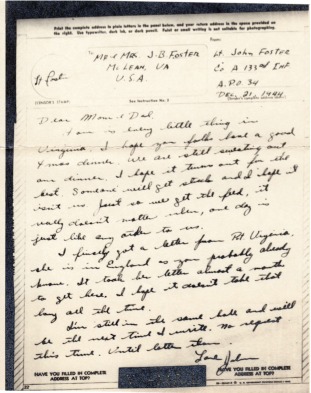 Print the complete address in plain letters in the panel below, and your return address in the space provided on
the right. Use typewriter, dark ink, or dark pencil. Faint or small writing is not suitable for photographing.
From:
To: Mr & Mrs J-B FOSTER
McLEAN, VA
U.S.A.
Lt. John FOSTER
Co A 133rd INF
A.P.O. 34
DEC, 21, 1944
Lt Foster
CENSOR'S STAMP
See Instruction No. 2
Dear Mom & Dad,
is every little thing in
Virginia. I hope you folks have a good
Xmas dinner. We are still sweating out
our dinner. I hope it turns out for the
best. Someone will get stuck and I hope it
isn't us. Just so we get the feed, it
really doesn't matter when, one day is
just like any other to us.
I finally got a letter from Pvt Virginia,
she is in England as you probably already
know. It took her letter almost a month
to get here, I hope it doesn't take that
long all the time.
I'm still in the same hole and will
be the next time I write. No repeat
this time. Until letter then.
Love John
HAVE YOU FILLED IN COMPLETE
ADDRESS AT TOP?
HAVE YOU FILLED IN COMPLETE
ADDRESS AT TOP?